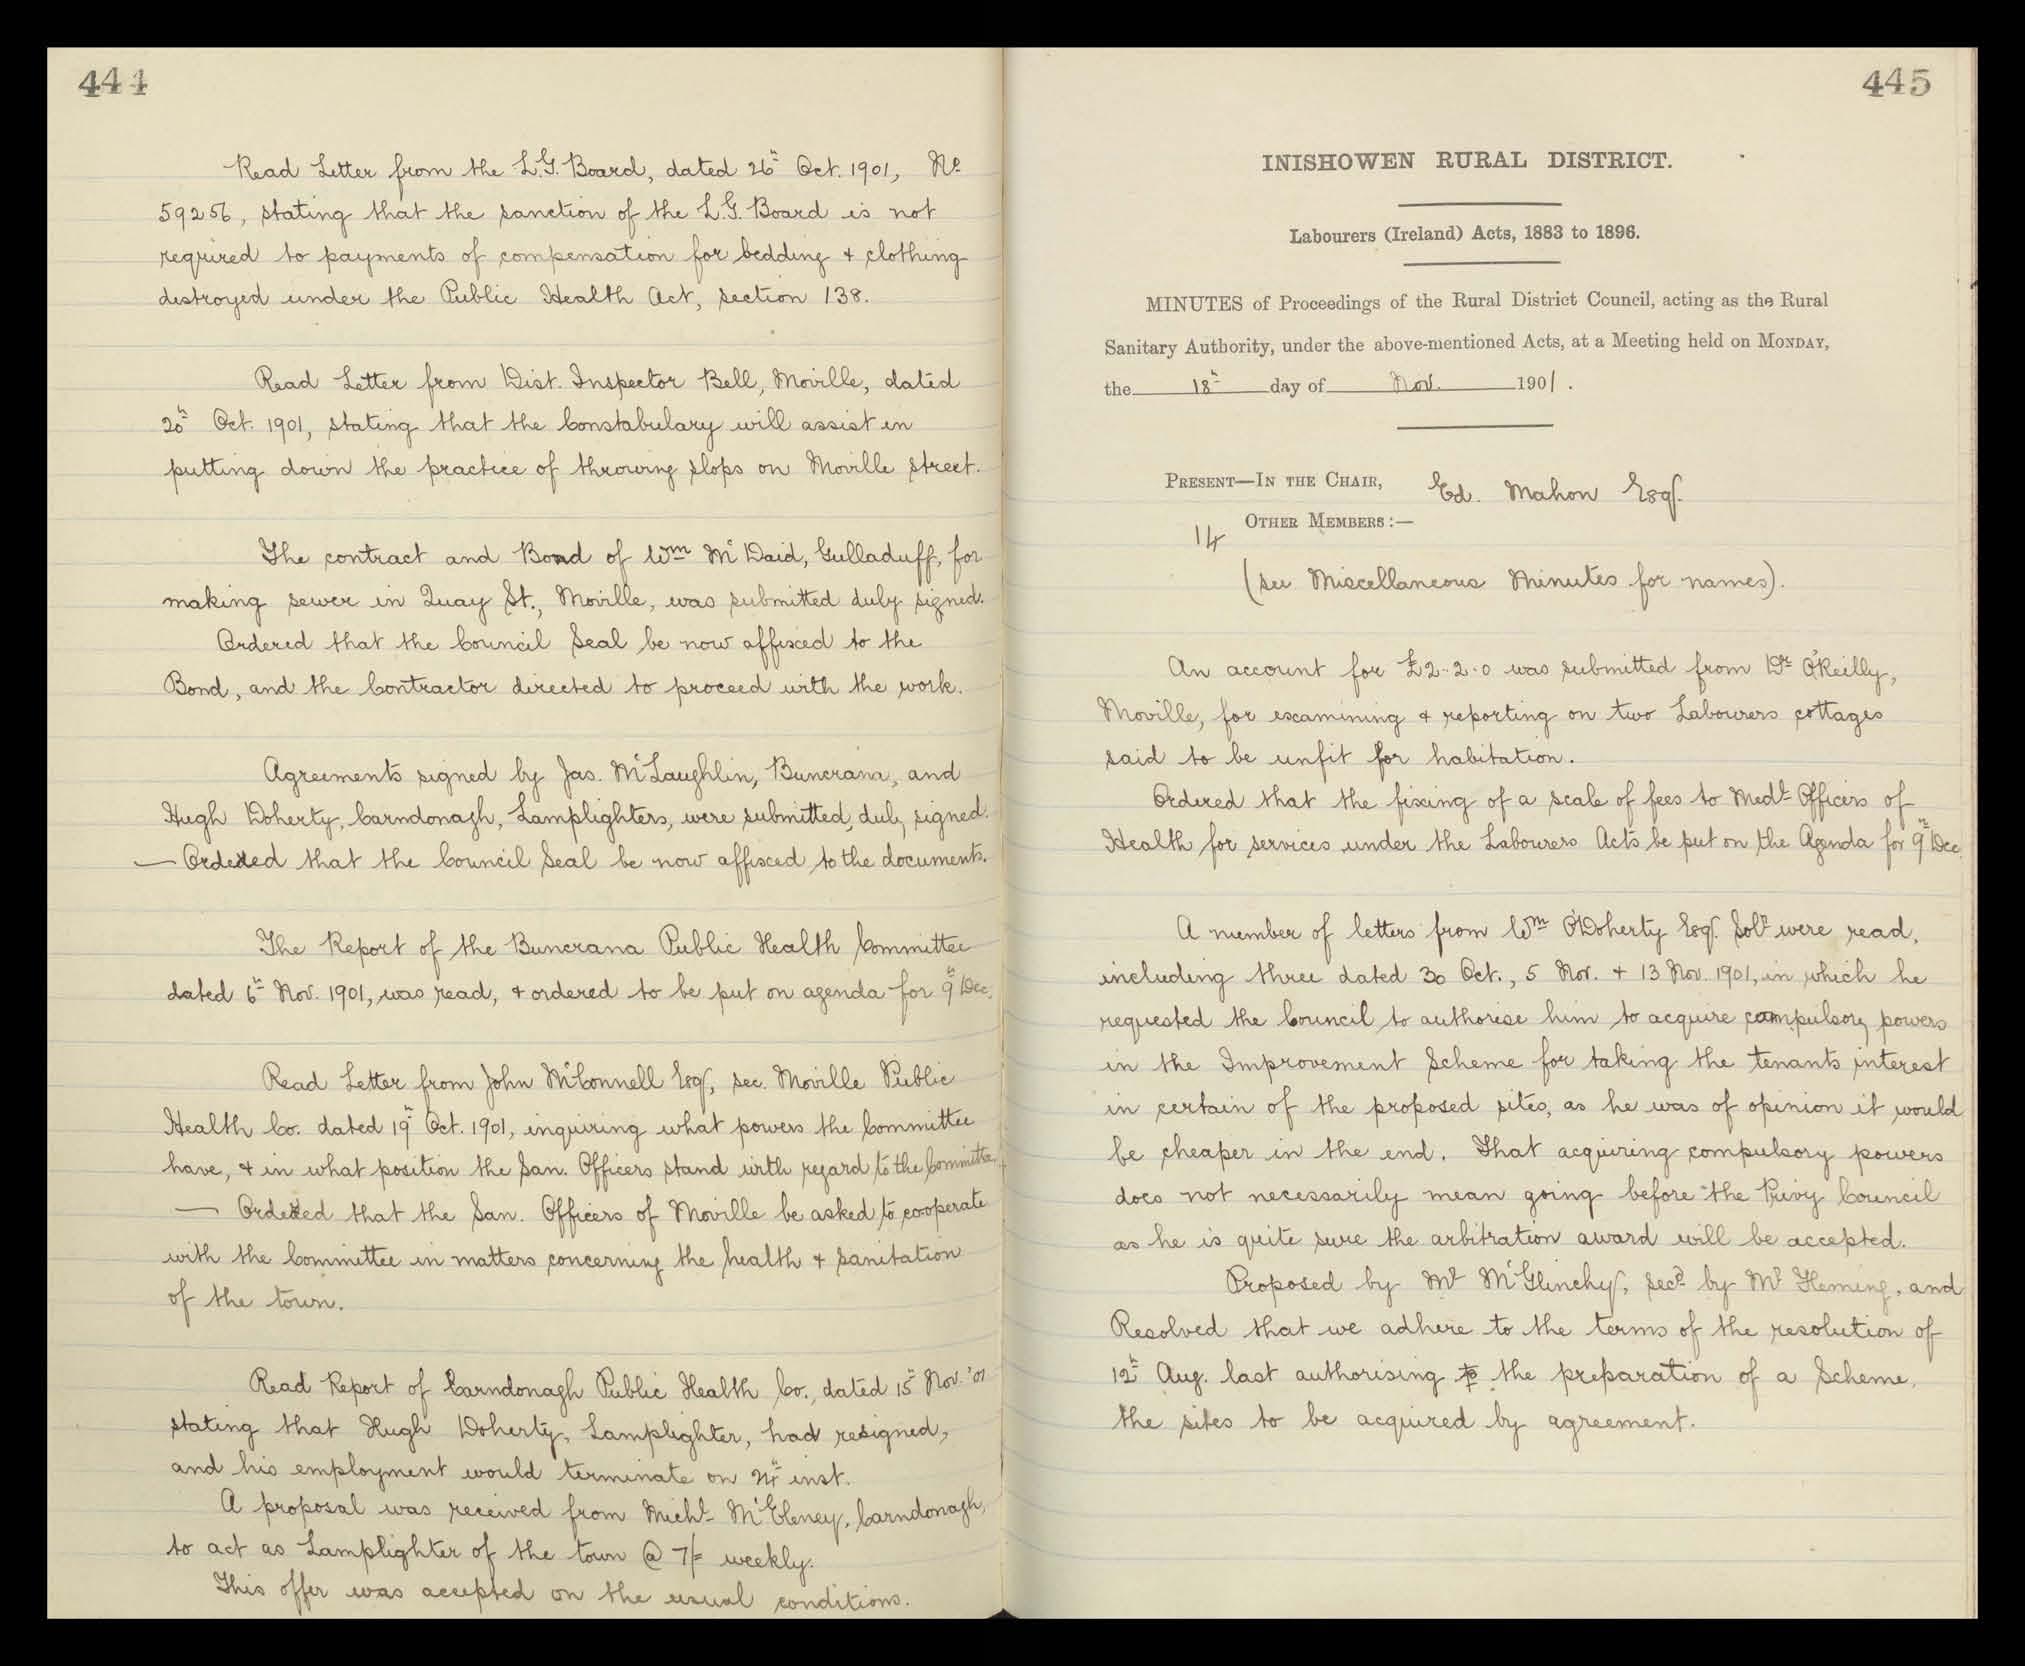 444
Read Letter from the L.G. Board, dated 26th Oct. 1901, No
59256, stating that the sanction of the L.G. Board is not
required to payments of compensation for bedding & clothing
destroyed under the Public Health Act, section 138.
Read Letter from Dist. Inspector Bell, Moville, dated
20th Oct. 1901, stating that the Constabulary will assist in
putting down the practice of throwing slops on Moville street.
The contract and Bond of Wm McDaid, Gulladuff, for
making sewer in Quay St., Moville, was submitted duly signed.
Ordered that the Council Seal be now affixed to the
Bond, and the Contractor directed to proceed with the work.
Agreements signed by Jas. McLaughlin, Buncrana, and
Hugh Doherty, Carndonagh, Lamplighters, were submitted, duly signed.
— Ordered that the Council Seal be now affixed to the documents.
The Report of the Buncrana Public Health Committee
dated 6th Nov. 1901, was read, & ordered to be put on agenda for 9th Dec.
Read Letter from John McConnell Esq, sec. Moville Public
Health Co. dated 19th Oct. 1901, inquiring what powers the Committee
have, & in what position the San. Officers stand with regard to the Committee
— Ordered that the San. Officers of Moville be asked to co-operate
with the Committee in matters concerning the health & sanitation
of the town.
Read Report of Carndonagh Public Health Co., dated 15th Nov. '01
stating that Hugh Doherty, Lamplighter, had resigned,
and his employment would terminate on 24th inst.
A proposal was received from Michl McEleney, Carndonagh,
to act as Lamplighter of the town @ 7/= weekly.
This offer was accepted on the usual conditions.
445
INISHOWEN RURAL DISTRICT.
Labourers (Ireland) Acts, 1883 to 1896.
MINUTES of Proceedings of the Rural District Council, acting as the Rural
Sanitary Authority, under the above-mentioned Acts, at a Meeting held on MONDAY,
the 18th day of Nov. 1901.
PRESENT—IN THE CHAIR, Ed. Mahon Esq.
OTHER MEMBERS:—
14
(see Miscellaneous Minutes for names).
An account for £2..2.0 was submitted from Dr O'Reilly,
Moville, for examining & reporting on two Labourers cottages
said to be unfit for habitation.
Ordered that the fixing of a scale of fees to Medl Officers of
Health for services under the Labourers Acts be put on the Agenda for 9th Dec.
A number of letters from Wm O'Doherty Esq. Solr were read,
including three dated 30 Oct., 5 Nov. & 13 Nov. 1901, in which he
requested the Council to authorise him to acquire compulsory powers
in the Improvement Scheme for taking the tenants interest
in certain of the proposed sites, as he was of opinion it would
be cheaper in the end. That acquiring compulsory powers
does not necessarily mean going before the Privy Council
as he is quite sure the arbitration award will be accepted.
Proposed by Mr McGlinchy, secd by Mr Fleming, and
Resolved that we adhere to the terms of the resolution of
12th Aug. last authorising to the preparation of a Scheme,
the sites to be acquired by agreement.